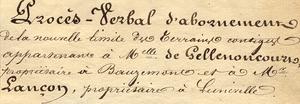 Procès-Verbal d'abornement
de la nouvelle limite des Terrains contigus
appartenants à Melle de Pellenoncourt,
propriétaire à Bauzemont et à Mr
Lançon, propriétaire à Lunéville